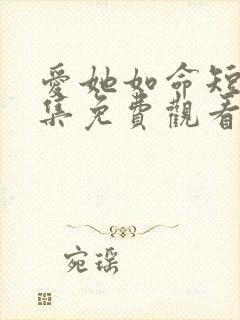 愛她如命短
集免費觀看
宛瑶